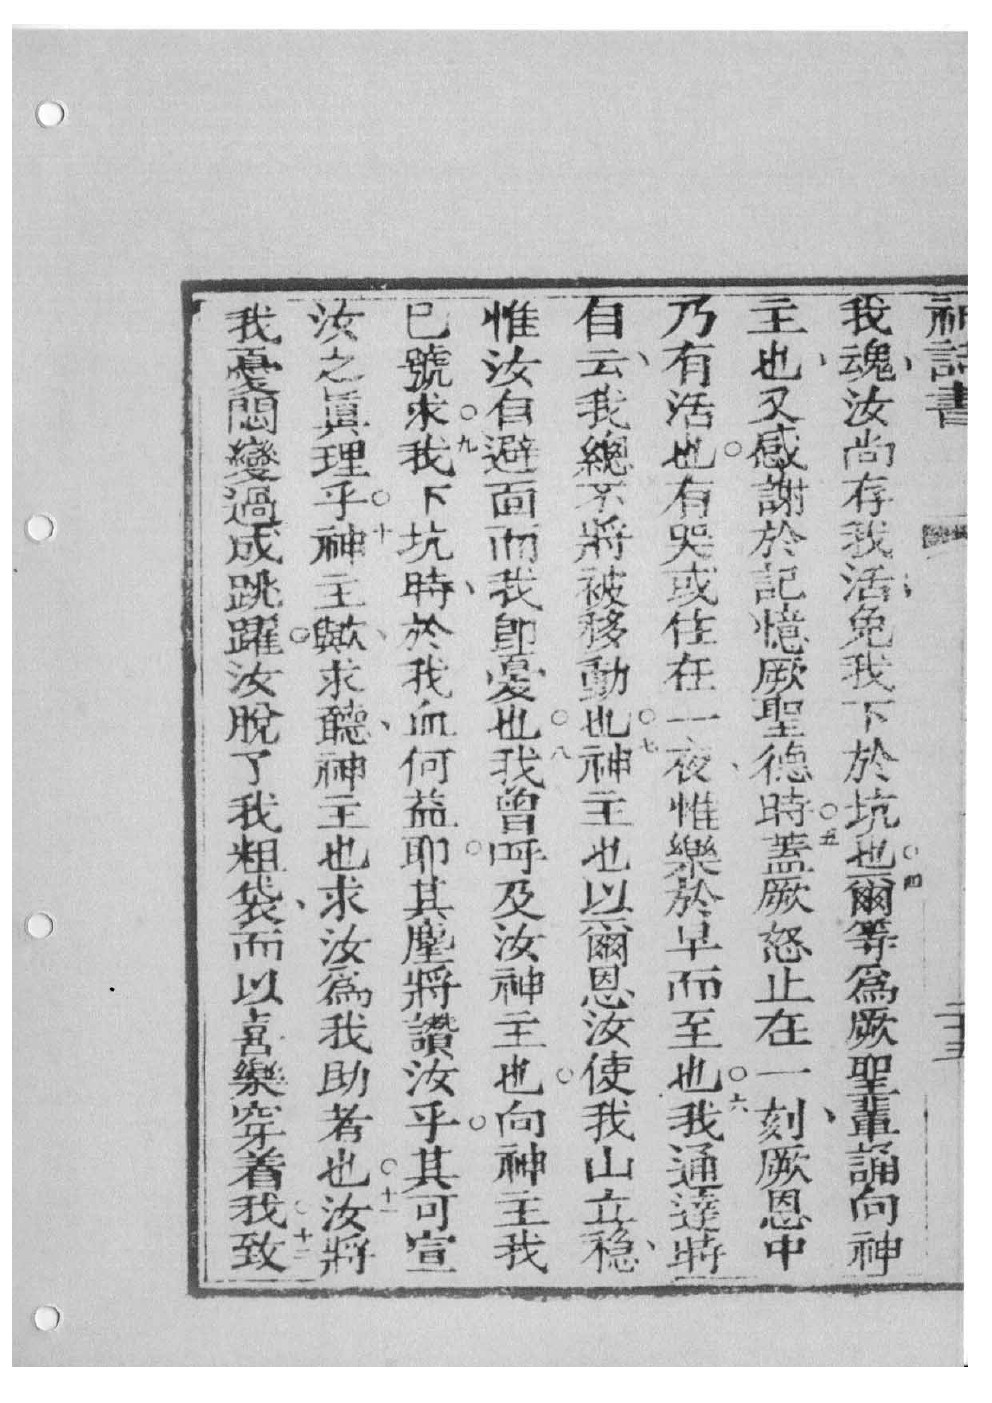 神詩書 二十五
我魂、汝尚存我活、免我下於坑也。四爾等為厥聖輩誦向神
主也、又感謝於記憶厥聖德時。五蓋厥怒止在一刻、厥恩中
乃有活也。有哭或住在一夜、惟樂於早而至也。六我通達時
自云、我總不將被移動也。七神主也以爾恩汝使我山立穩、
惟汝自避面而我卽憂也。八我曾呼及汝神主也。向神主我
已號求。九我下坑時、於我血何益耶。其塵將讚汝乎。其可宣
汝之眞理乎。十神主歟、求聽、神主也求汝爲我助者也。十一汝將
我憂悶變過成跳躍。汝脫了我粗袋、而以喜樂穿着我。十二致